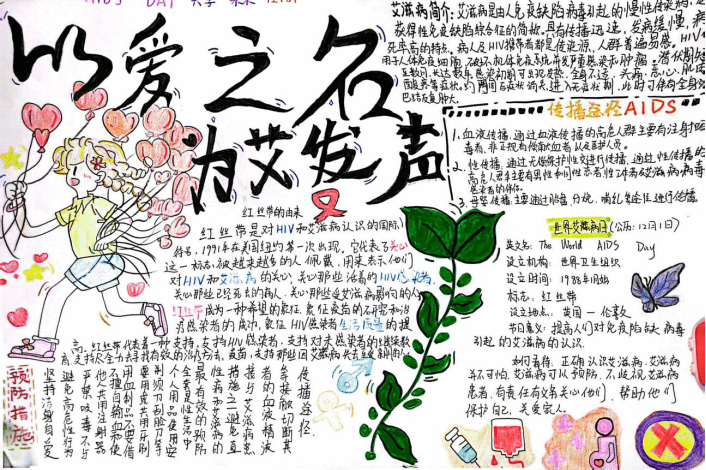 AIDS DAY
以爱之名
为艾发声
艾滋病简介:艾滋病是由人免疫缺陷病毒引起的慢性传染病,是
获得性免疫缺陷综合征的简称。具有传播迅速,发病缓慢,病
死率高的特点。病人及HIV携带者都是传染源,人群普遍易感。HIV
传播途径AIDS
1.血液传播,通过血液传播的高危人群主要有注射吸
2.性传播,通过无保护性交进行传播,通过性传播的
3.母婴传播,主要通过胎盘、分娩、哺乳等途径进行传播
红丝带的由来
红丝带是对HIV和艾滋病认识的国际
符号,1991年在美国纽约第一次出现。它代表了关心
这一标志被越来越多的人佩戴,用来表示他们
对HIV和艾滋病的关心,关心那些活着的HIV感染者,
关心那些已经死去的病人,关心那些受艾滋病影响的人
红丝带成为一种希望的象征,象征疫苗的研究和治
疗感染者的成功,象征HIV感染者生活质量的提
高。红丝带代表着一种支持,支持HIV感染者,支持对未感染者的继续教
育,支持尽全力去寻找有效的治疗方法、疫苗,支持那些因艾滋病失去
世界艾滋病日(公历:12月1日)
英文名:The World AIDS Day
设立机构:世界卫生组织
设立时间:1988年1月
标志:红丝带
设立地点:英国—伦敦
节日意义:提高人们对免疫缺陷病毒
引起的艾滋病的认识。
如何看待:正确认识艾滋病,艾滋病
并不可怕,艾滋病可以预防,不歧视艾滋病
患者,有责任有义务关心他们,帮助他们
保护自己,关爱家人。
预防措施
坚持洁身自爱
避免高危性行为
严禁吸毒不与
他人共用注射器
不擅自输血和使
用血制品不要借
用或共用牙刷
剃须刀刮脸刀等
个人用品使用安
全套是性生活中
最有效的预防
性病和艾滋病的
措施之一避免直
接与艾滋病患
者的血液精液
接触切断其
传播途径